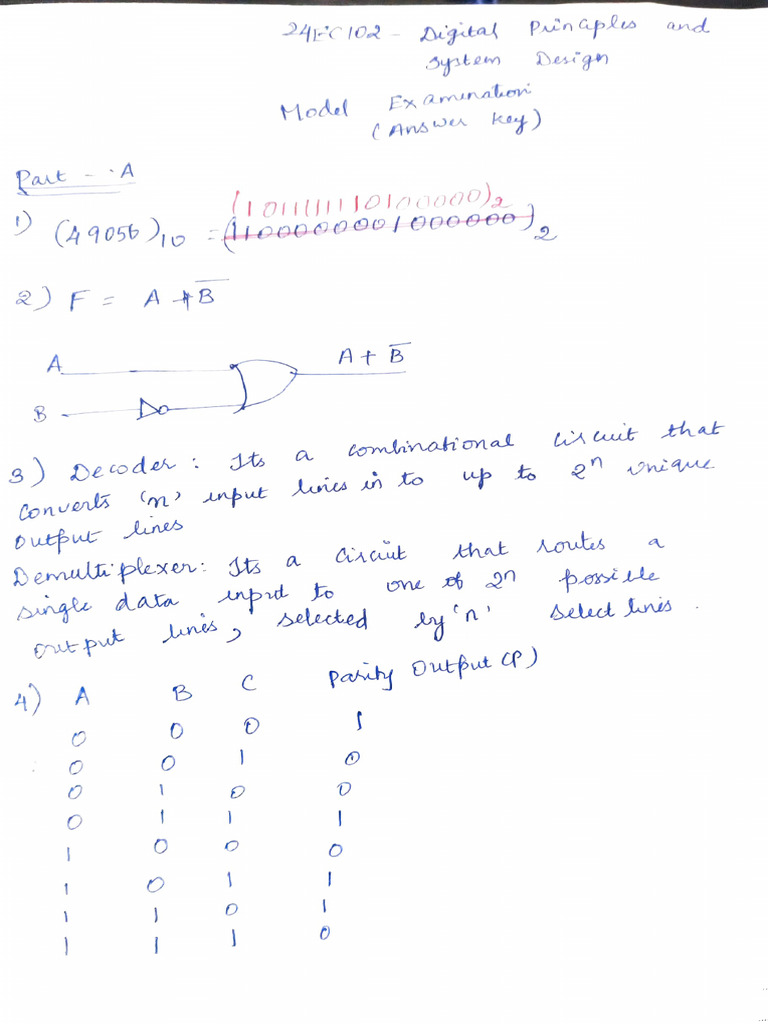 24EC102 - Digital Principles and
System Design
Model Examination
(Answer Key)
Part - A
(1011111110100000)2
1) (49056)10 = (1100000001000000)2
2) F = A + B̅
A
A + B̅
B
3) Decoder : Its a combinational circuit that
converts 'n' input lines in to up to 2ⁿ unique
output lines
Demultiplexer: Its a circuit that routes a
single data input to one of 2ⁿ possible
output lines, selected by 'n' select lines.
4) A B C Parity Output (P)
0 0 0 1
0 0 1 0
0 1 0 0
0 1 1 1
1 0 0 0
1 0 1 1
1 1 0 1
1 1 1 0